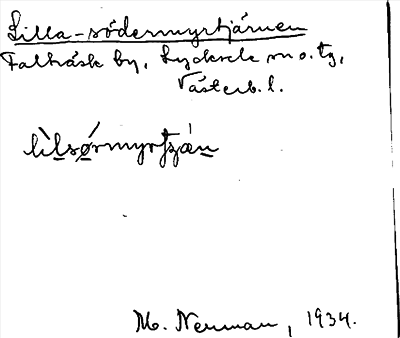 Lilla-södermyrtjärnen
Falträsk by, Lycksele m o. tg,
Västerb. l.
lìlsǿrmyrtjæn
M. Nerman, 1934.